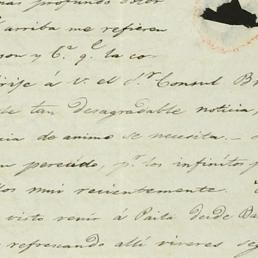 mas profundo dolor
arriba me refieren
son y Cª. qᵉ la co-
rije á V. el Sʳ Consul Br
de tan desagradable noticia,
cia de animo se necesita.
perecido, pʳ los infinitos p
los mui recientemente.
visto venir á Paita desde
refrescando alli viveres se